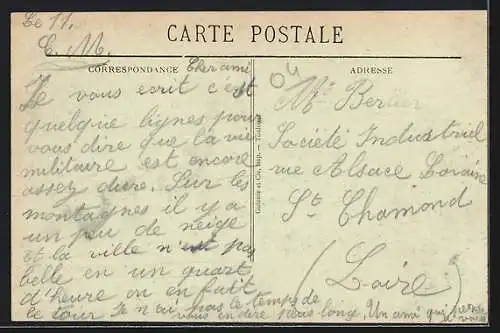 Le 11.
CARTE POSTALE
C. M.
CORRESPONDANCE
Cher ami
Je vous ecrit c'est
quelque lignes pour
vous dire que la vie
militaire est encore
assez dure. Sur les
montagnes il y a
un peu de neige
et la ville n'est pas
belle en un quart
d'heure on en fait
le tour Je n'ai pas le temps de
vous en dire plus long. Un ami qui pense
à vous
ADRESSE
Mr Berlier
Société Industriel
rue Alsace Loraine
St Chamond
(Loire)